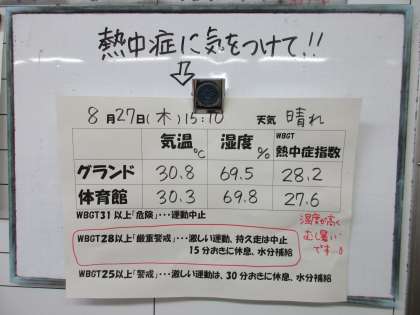 熱中症に気をつけて!!
8月27日(木)15:10 天気 晴れ
気温℃ 湿度% WBGT熱中症指数
グランド 30.8 69.5 28.2
体育館 30.3 69.8 27.6
WBGT31以上「危険」･･･運動中止
WBGT28以上「厳重警戒」･･･激しい運動、持久走は中止
15分おきに休息、水分補給
WBGT25以上「警戒」･･･激しい運動は、30分おきに休息、水分補給
湿度が高く
むし暑い
です